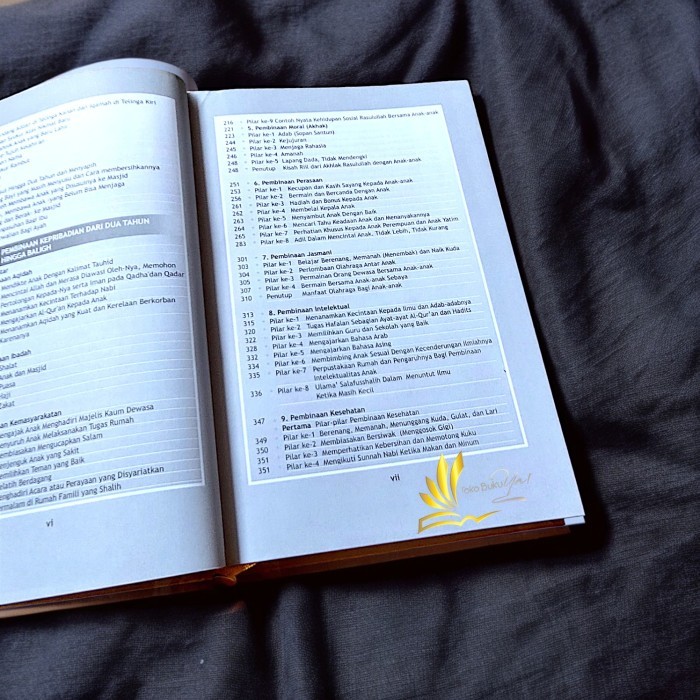 di Telinga Kanan dan Iqamah di Telinga Kiri
hingga Dua Tahun dan Menyapih
Bayi yang Masih Menyusu dan Cara membersihkannya
Membawa Anak yang Disusuinya ke Masjid
Membawa Anak-yang Belum Bisa Menjaga
dan Berak- ke Masjid
PEMBINAAN KEPRIBADIAN DARI DUA TAHUN
HINGGA BALIGH
Aqidah
Mendikte Anak Dengan Kalimat Tauhid
Mencintai Allah dan Merasa Diawasi Oleh-Nya, Memohon
Pertolongan Kepada-Nya serta Iman pada Qadha' dan Qadar
Menanamkan Kecintaan Terhadap Nabi
Mengajarkan Al-Qur'an Kepada Anak
Menanamkan Aqidah yang Kuat dan Kerelaan Berkorban
Karenanya
Ibadah
Shalat
Anak dan Masjid
Puasa
Haji
Zakat
Kemasyarakatan
Mengajak Anak Menghadiri Majelis Kaum Dewasa
Menyuruh Anak Melaksanakan Tugas Rumah
Membiasakan Mengucapkan Salam
Menjenguk Anak yang Sakit
Memilihkan Teman yang Baik
Melatih Berdagang
Menghadiri Acara atau Perayaan yang Disyariatkan
Bermalam di Rumah Famili yang Shalih
vi
216 Pilar ke-9 Contoh Nyata Kehidupan Sosial Rasulullah Bersama Anak-anak
221 5. Pembinaan Moral (Akhak)
223 Pilar ke-1 Adab (Sopan Santun)
244 Pilar ke-2 Kejujuran
245 Pilar ke-3 Menjaga Rahasia
246 Pilar ke-4 Amanah
248 Pilar ke-5 Lapang Dada, Tidak Mendengki
248 Penutup Kisah Riil dari Akhlak Rasulullah dengan Anak-anak
251 6. Pembinaan Perasaan
253 Pilar ke-1 Kecupan dan Kasih Sayang Kepada Anak-anak
256 Pilar ke-2 Bermain dan Bercanda Dengan Anak
261 Pilar ke-3 Hadiah dan Bonus Kepada Anak
262 Pilar ke-4 Membelai Kepala Anak
263 Pilar ke-5 Menyambut Anak Dengan Baik
264 Pilar ke-6 Mencari Tahu Keadaan Anak dan Menanyakannya
265 Pilar ke-7 Perhatian Khusus Kepada Anak Perempuan dan Anak Yatim
283 Pilar ke-8 Adil Dalam Mencintai Anak, Tidak Lebih, Tidak Kurang
301 7. Pembinaan Jasmani
303 Pilar ke-1 Belajar Berenang, Memanah (Menembak) dan Naik Kuda
304 Pilar ke-2 Perlombaan Olahraga Antar Anak
305 Pilar ke-3 Permainan Orang Dewasa Bersama Anak-anak
307 Pilar ke-4 Bermain Bersama Anak-anak Sebaya
310 Penutup Manfaat Olahraga Bagi Anak-anak
313 8. Pembinaan Intelektual
315 Pilar ke-1 Menanamkan Kecintaan Kepada Ilmu dan Adab-adabnya
320 Pilar ke-2 Tugas Hafalan Sebagian Ayat-ayat Al-Qur'an dan Hadits
322 Pilar ke-3 Memilihkan Guru dan Sekolah yang Baik
328 Pilar ke-4 Mengajarkan Bahasa Arab
332 Pilar ke-5 Mengajarkan Bahasa Asing
334 Pilar ke-6 Membimbing Anak Sesuai Dengan Kecenderungan Ilmiahnya
335 Pilar ke-7 Perpustakaan Rumah dan Pengaruhnya Bagi Pembinaan
Intelektualitas Anak
336 Pilar ke-8 Ulama' Salafusshalih Dalam Menuntut Ilmu
Ketika Masih Kecil
347 9. Pembinaan Kesehatan
Pertama Pilar-pilar Pembinaan Kesehatan
349 Pilar ke-1 Berenang, Memanah, Menunggang Kuda, Gulat, dan Lari
350 Pilar ke-2 Membiasakan Bersiwak (Menggosok Gigi)
351 Pilar ke-3 Memperhatikan Kebersihan dan Memotong Kuku
351 Pilar ke-4 Mengikuti Sunnah Nabi Ketika Makan dan Minum
vii
Toko Buku